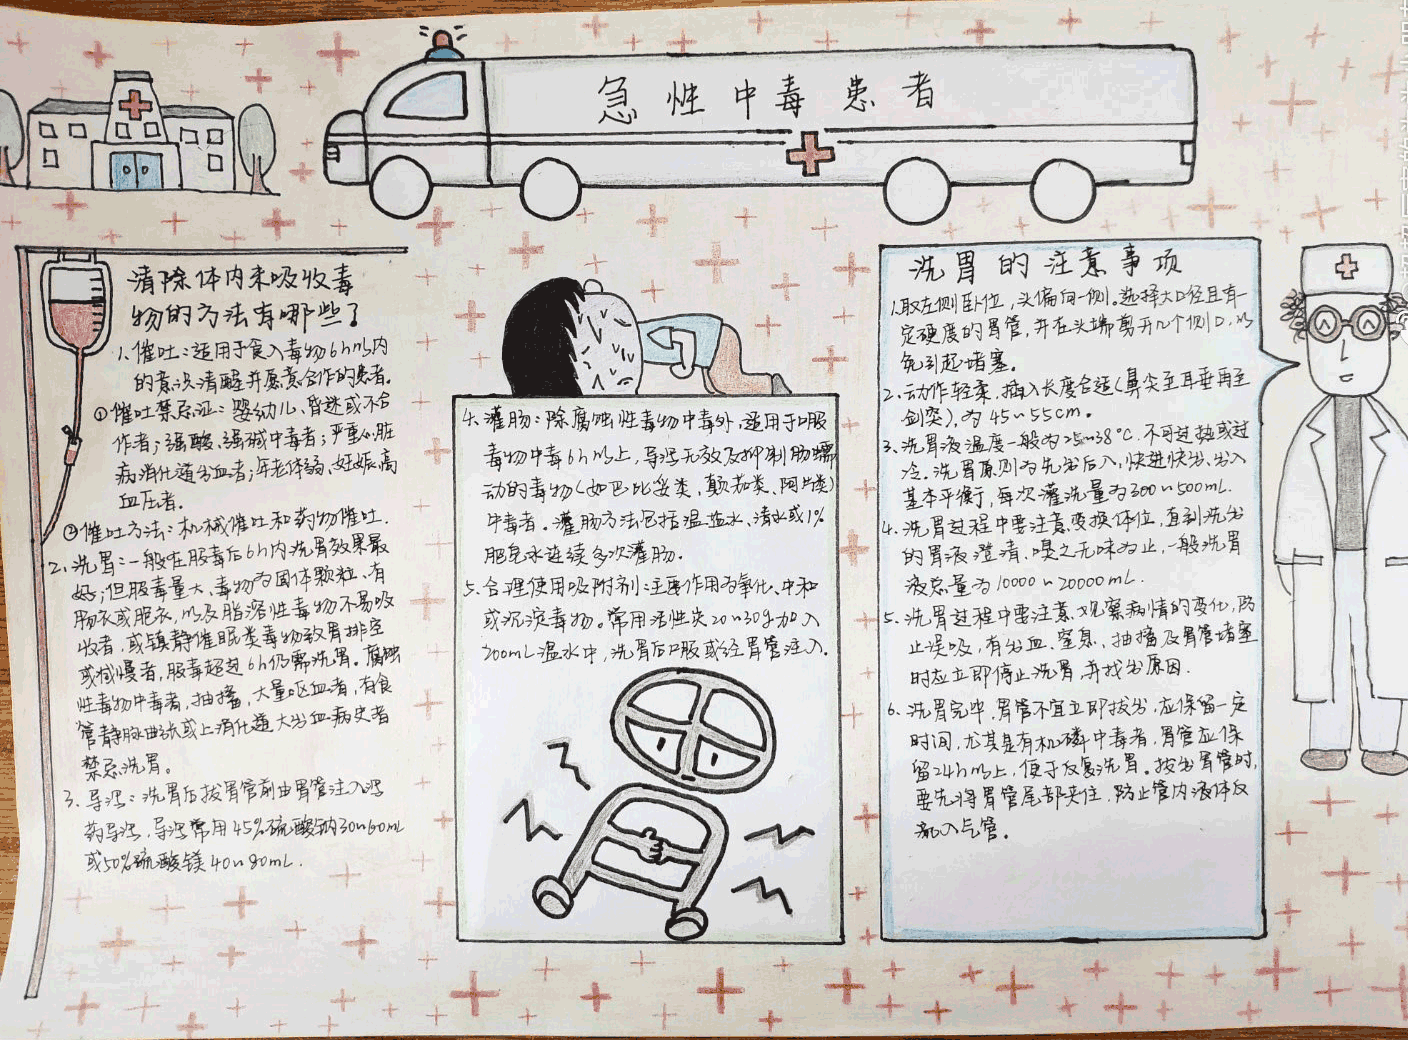 急性中毒患者
清除体内未吸收毒
物的方法有哪些？
1、催吐：适用于食入毒物6h以内
的意识清醒并愿意合作的患者。
①催吐禁忌证：婴幼儿、昏迷或不合
作者；强酸、强碱中毒者；严重心脏
病、消化道出血者；年老体弱、妊娠、高
血压者。
②催吐方法：机械催吐和药物催吐.
2、洗胃：一般在服毒后6h内洗胃效果最
好；但服毒量大、毒物为固体颗粒、有
肠衣或肥衣，以及脂溶性毒物不易吸
收者，或镇静催眠类毒物致胃排空
或减慢者，服毒超过6h仍需洗胃。腐蚀
性毒物中毒者，抽搐，大量呕血者，有食
管静脉曲张或上消化道大出血病史者
禁忌洗胃。
3、导泻：洗胃后拔胃管前由胃管注入泻
药导泻，导泻常用45%硫酸钠30~60mL
或50%硫酸镁40~80mL.
4、灌肠：除腐蚀性毒物中毒外，适用于口服
毒物中毒6h以上，导泻无效及抑制肠蠕
动的毒物（如巴比妥类，颠茄类、阿片类）
中毒者。灌肠方法包括温盐水、清水或1%
肥皂水连续多次灌肠.
5、合理使用吸附剂：主要作用为氧化、中和
或沉淀毒物。常用活性炭20~30g加入
200mL温水中，洗胃后口服或经胃管注入.
洗胃的注意事项
1.取左侧卧位，头偏向一侧。选择大口径且有一
定硬度的胃管，并在头端剪开几个侧口，以
免引起堵塞。
2、动作轻柔，插入长度合适（鼻尖至耳垂再至
剑突），为45~55cm。
3、洗胃液温度一般为25~38°C.不可过热或过
冷。洗胃原则为先出后入，快进快出，出入
基本平衡，每次灌洗量为300~500mL.
4、洗胃过程中要注意变换体位，直到洗出
的胃液澄清、嗅之无味为止，一般洗胃
液总量为10000~20000mL.
5、洗胃过程中要注意观察病情的变化，防
止误吸，有出血、窒息、抽搐及胃管堵塞
时应立即停止洗胃，并找出原因.
6、洗胃完毕，胃管不宜立即拔出，应保留一定
时间，尤其是有机磷中毒者，胃管应保
留24h以上，便于反复洗胃。拔出胃管时，
要先将胃管尾部夹住，防止管内液体反
流入气管。